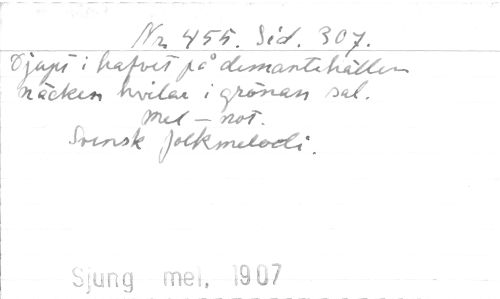 Nr 455. Sid. 307.
Djupt i hafvet på demantehällen
näcken hvilar i grönan sal.
Mel - not.
Svensk folkmelodi.
Sjung mel, 1907